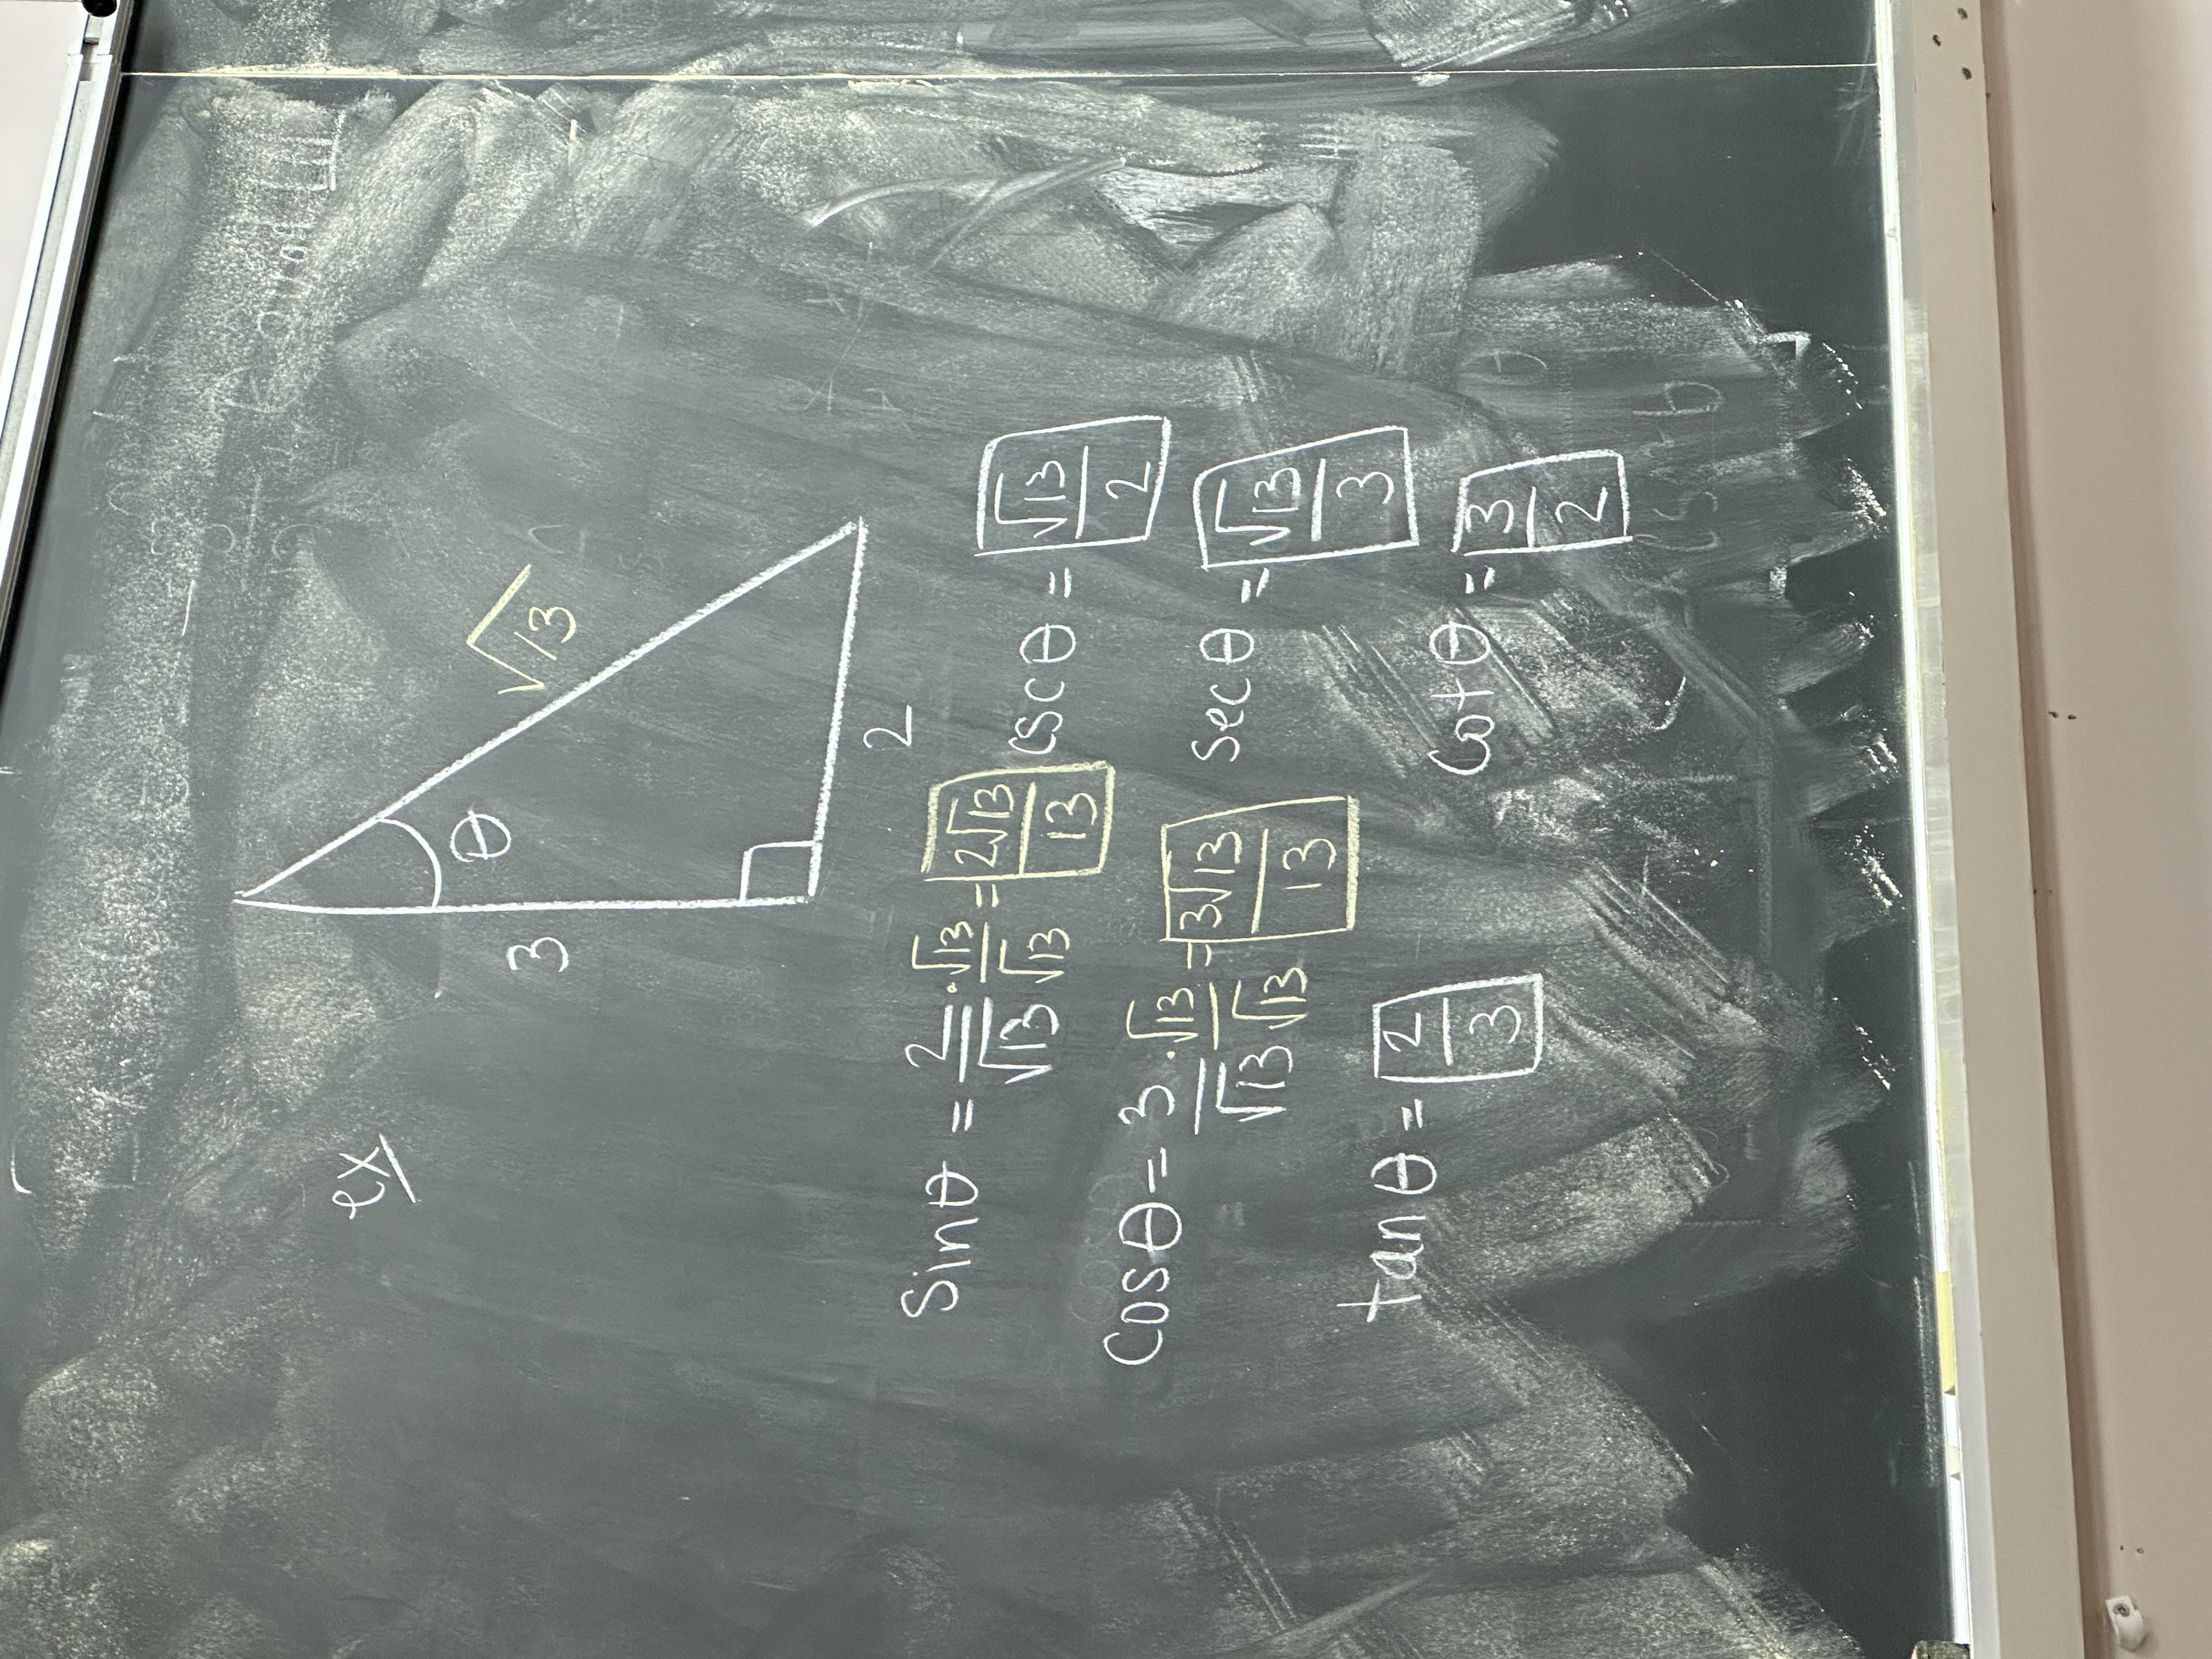 ex
θ
3
√13
2
Sinθ = 2/√13 · √13/√13 = 2√13/13
cscθ = √13/2
Cosθ = 3/√13 · √13/√13 = 3√13/13
Secθ = √13/3
tanθ = 2/3
Cotθ = 3/2